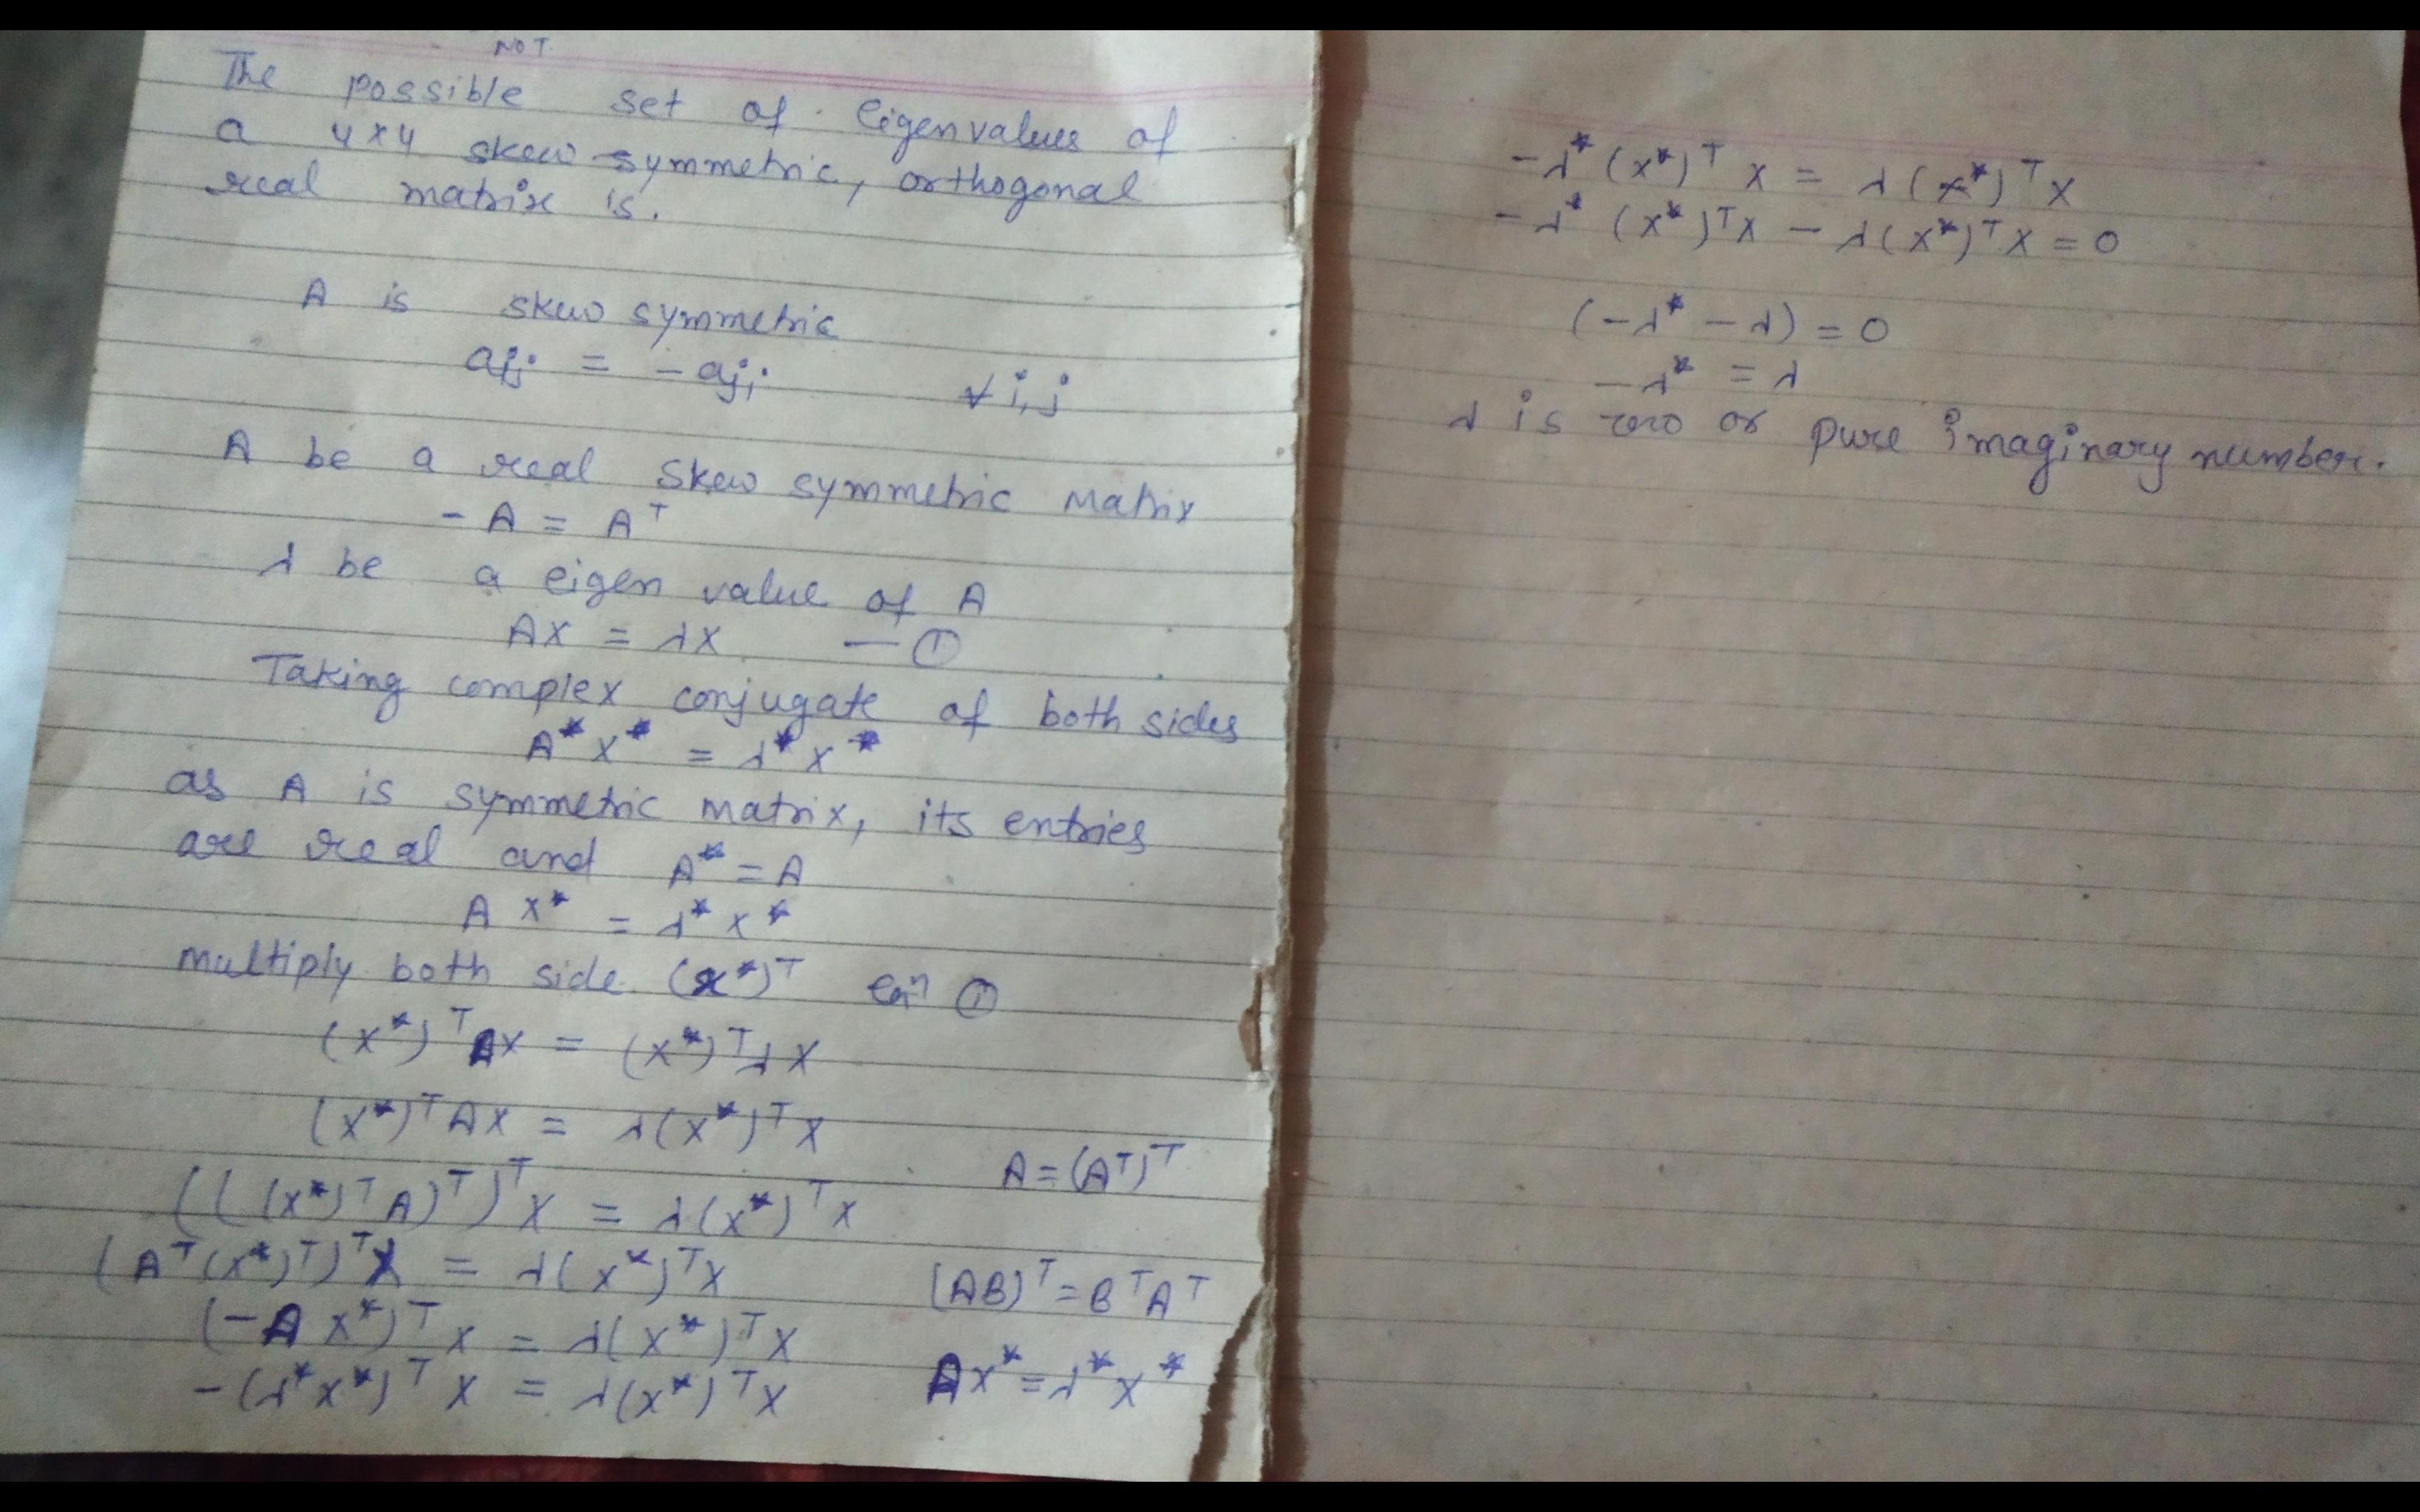 NOT
The possible set of Eigenvalues of
a 4×4 skew symmetric, orthogonal
real matrix is.
A is skew symmetric
aij = - aji ∀ i,j
A be a real Skew symmetric Matrix
- A = A^T
λ be a eigen value of A
AX = λX — ①
Taking complex conjugate of both sides
A* X* = λ* X*
as A is symmetric matrix, its entries
are real and A* = A
A X* = λ* X*
multiply both side (x*)^T eqn ①
(X*)^T AX = (X*)^T λ X
(X*)^T AX = λ(X*)^T X
(((X*)^T A)^T)^T X = λ(X*)^T X A = (A^T)^T
(A^T (X*)^T)^T X = λ(X*)^T X (AB)^T = B^T A^T
(-A X*)^T X = λ(X*)^T X
-(λ* X*)^T X = λ(X*)^T X AX* = λ* X*
-λ* (X*)^T X = λ (X*)^T X
-λ* (X*)^T X - λ(X*)^T X = 0
(-λ* - λ) = 0
-λ* = λ
λ is zero or pure imaginary number.